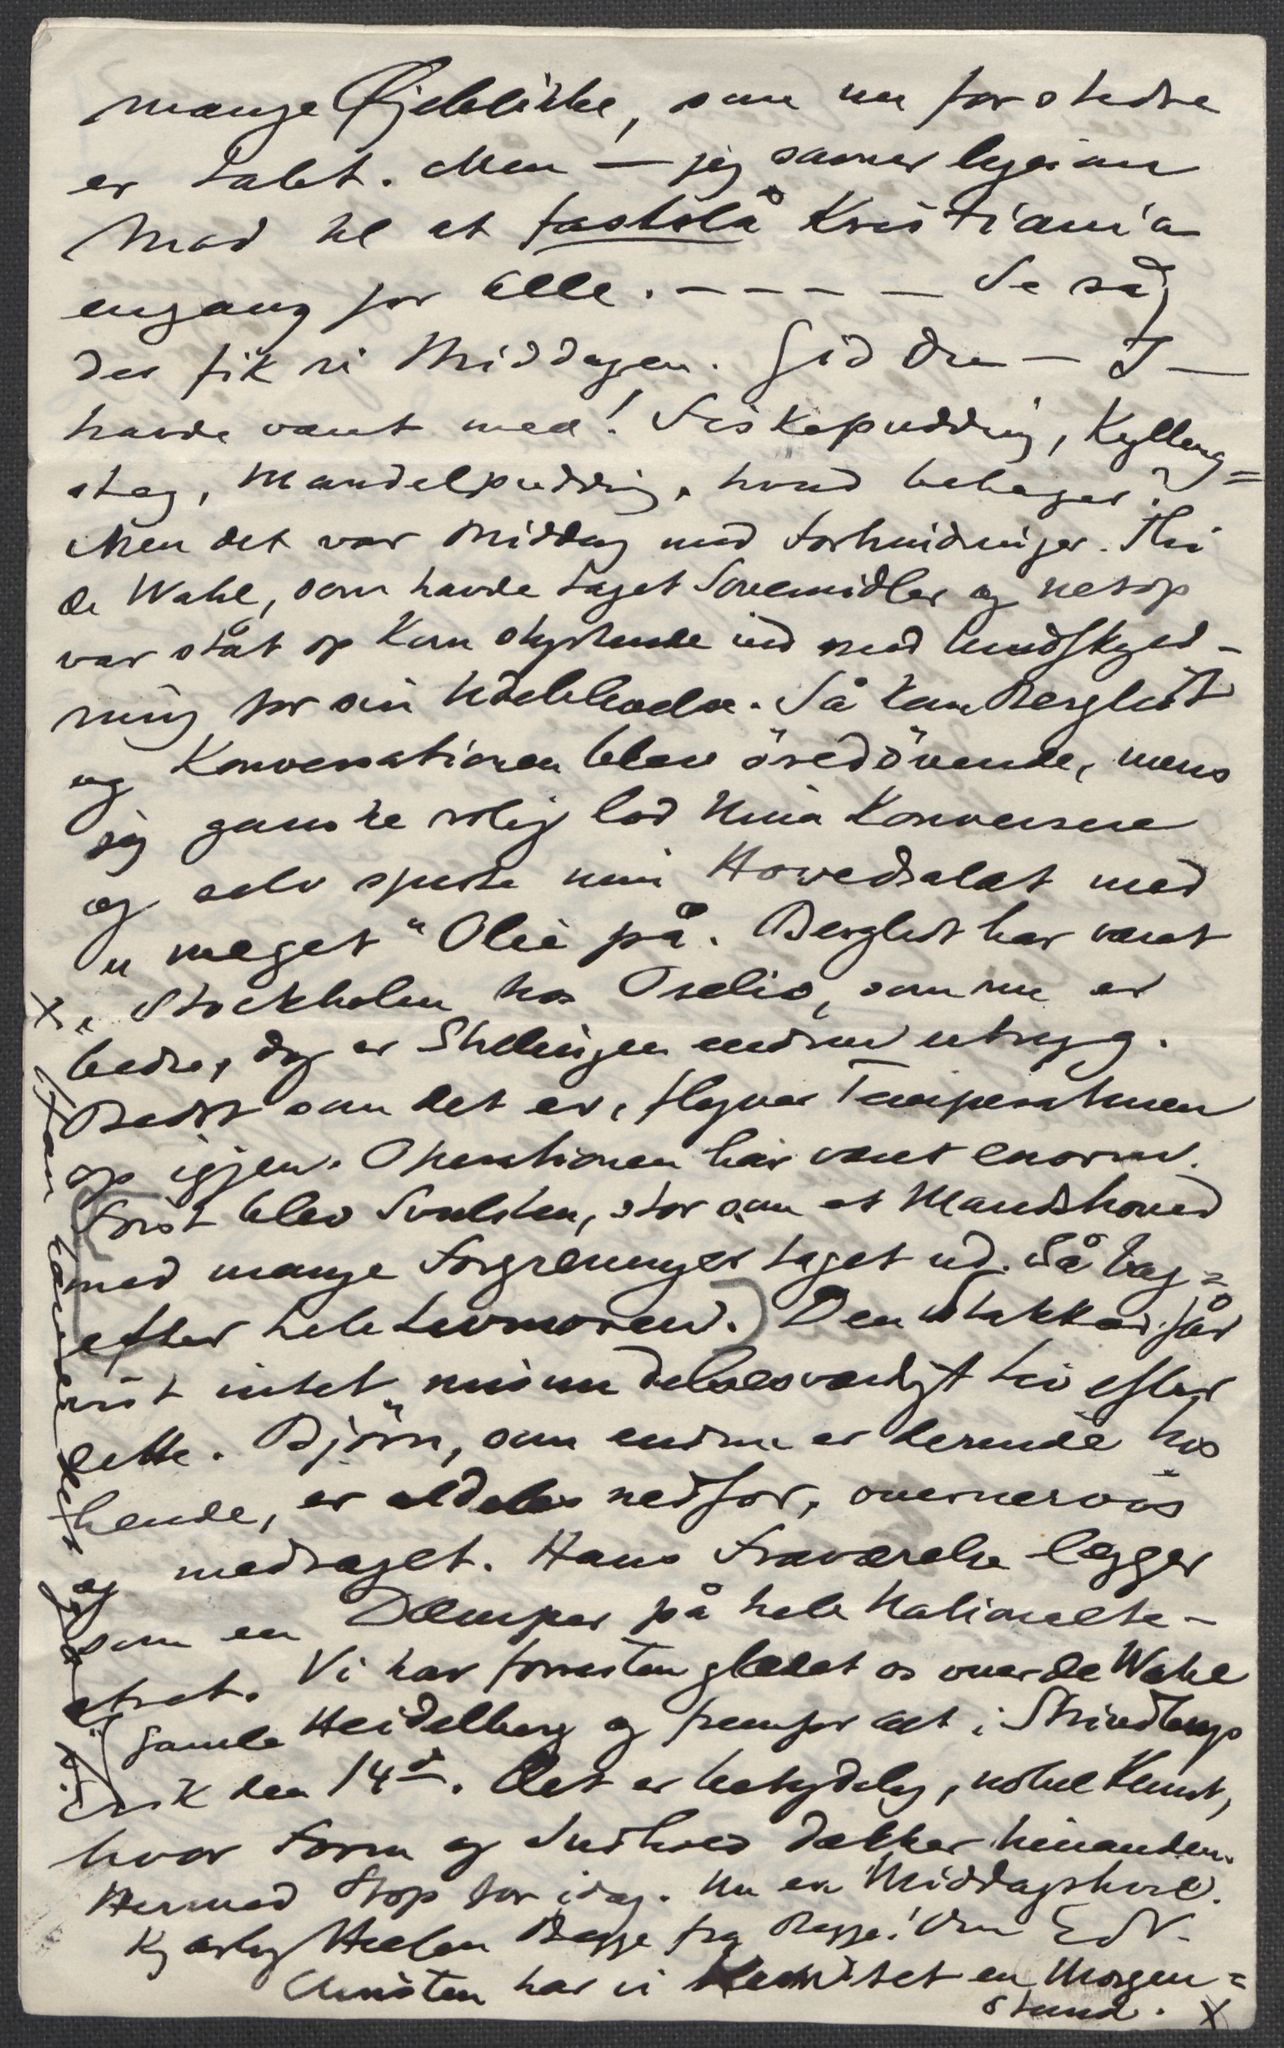 mange Øjeblikke, som nu for stedse
er tabt. Men — jeg samler ligesom
Mod til at fastslå Kristiania
engang for alle. — — — — Se så,
der fik vi Middagen. Gid du — I —
havde været med! Fiskepudding, Kylling=
steg, Mandelpudding, hvad behager?
Men det var Middag med Forhindringer. Thi
de Wahl, som havde taget Sovemidler og netop
var ståt op kom styrtende ind med Undskyld-
ning for sin Udeblivelse. Så kom Bergliot
og Konversationen blev öredövende, mens
jeg ganske rolig lod Nina konversere
og selv spiste min Hovedsalat med
"meget" Olie på. Bergliot har været
i Stockholm hos Oselio, som nu er
bedre, dog er Stillingen endnu utryg.
Bedst som det er, flyver Temperaturen
op igjen. Operationen har været enorm.
Först blev Svulsten, stor som et Mandshoved
med mange Forgreninger taget ud. Så bag=
efter hele Livmoren. Den Stakkar får
vist intet misundelsesværdigt Liv efter
dette. Björn, som endnu er derinde hos
hende, er aldeles nedfor, overnervös
og medtaget. Hans Fraværelse legger
som en Demper på hele Nationalte-
atret. Vi har forresten glædet os over de Wahl
i Gamle Heidelberg og fremfor alt i Strindbergs
Erik den 14de. Det er betydelig, nobel Kunst,
hvor Form og Indhold dækker hinanden.
Hermed Stop for idag. Nu en Middagshvil.
Kjærlig Hilsen Begge fra Begge! Din EdV.
Christen har vi kun set en Morgen=
stund. X
X Han